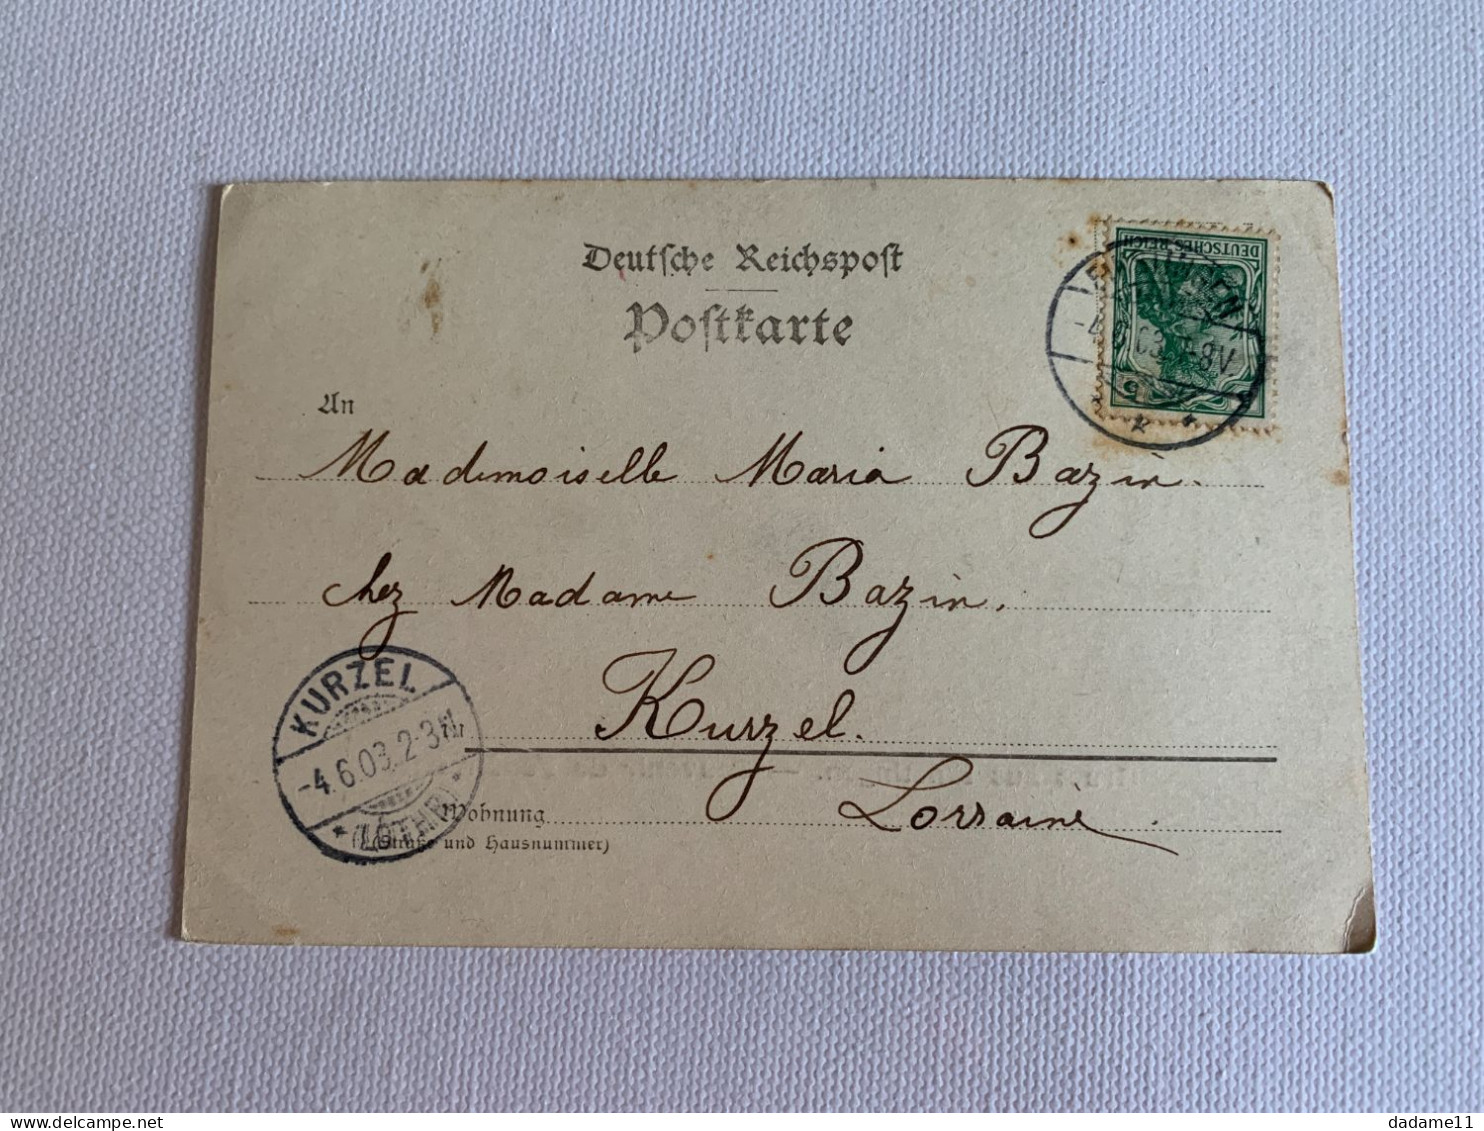 Deutsche Reichspost
Postkarte
DEUTSCHES REICH
5 5
7-8V
An
Mademoiselle Maria Bazin.
chez Madame Bazin.
Kurzel.
Lorraine
KURZEL
-4.6.03. 2-3N.
* (LOTHR) *
Wohnung
(Straße und Hausnummer)
dadame11